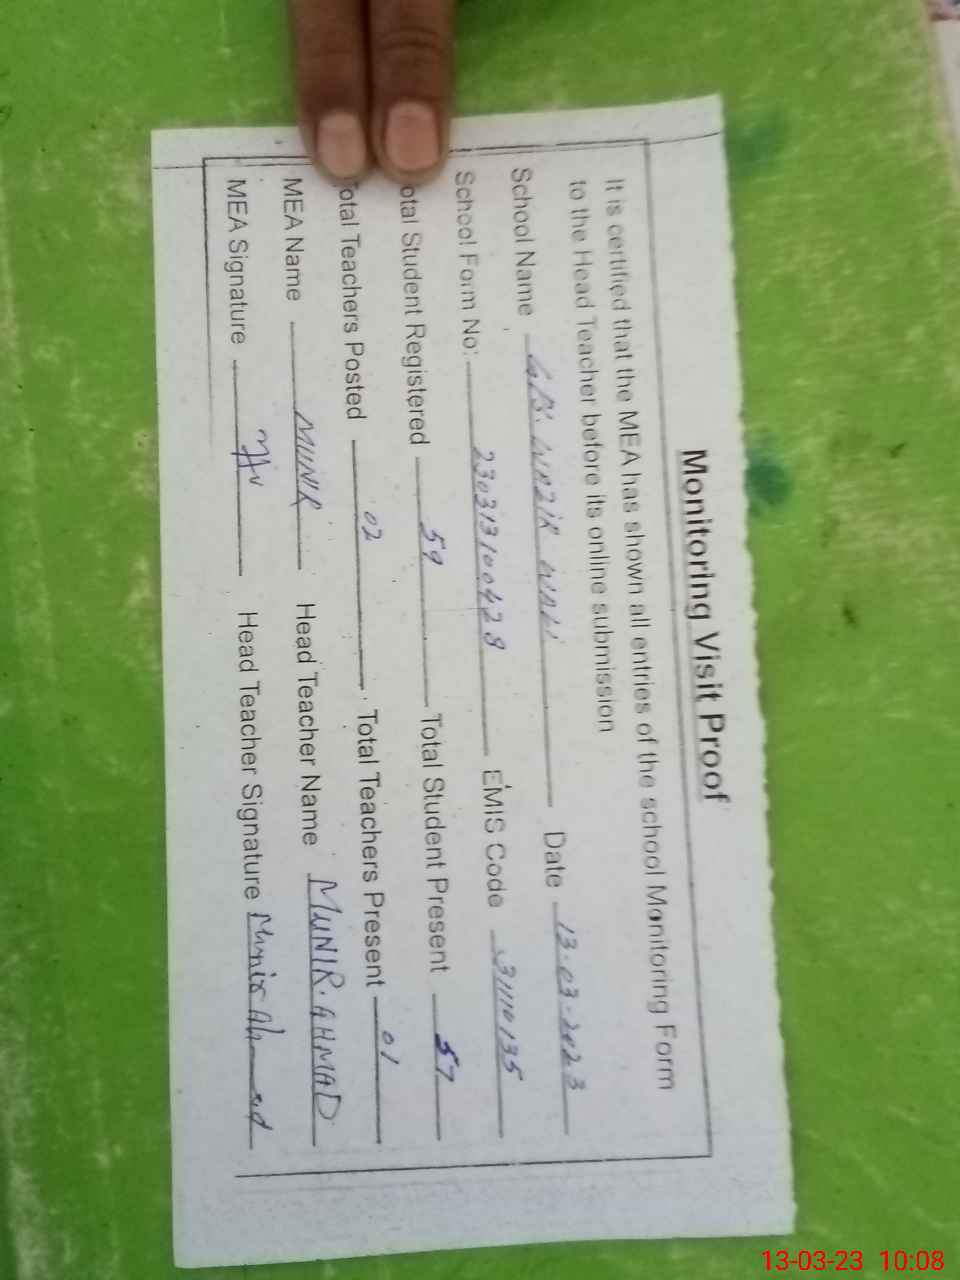 Monitoring Visit Proof
It is certified that the MEA has shown all entries of the school Monitoring Form
to the Head Teacher before its online submission
School Name Date 13-03-2023
School Form No: 230313100428 EMIS Code 31110135
otal Student Registered 59 Total Student Present 57
otal Teachers Posted 02 Total Teachers Present 01
MEA Name MUNIR Head Teacher Name MUNIR.AHMAD
MEA Signature Head Teacher Signature Munir Ahmad
13-03-23 10:08